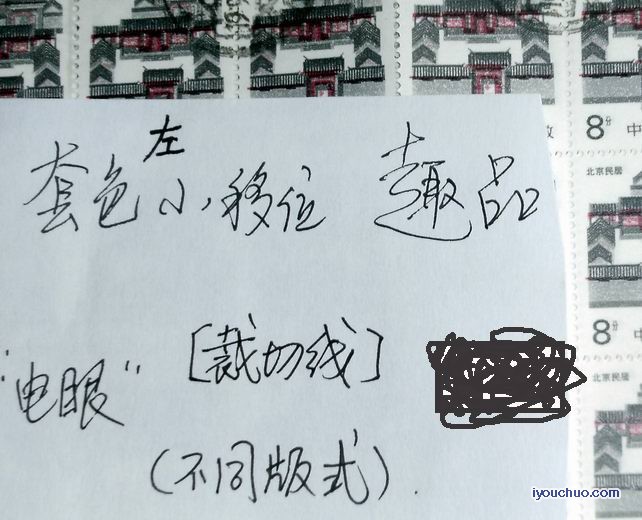 左
套色小移位 趣品
[裁切线]
"电眼"
(不同版式).
8分 中
北京民居
8分 中
北京民居
iyouchuo.com